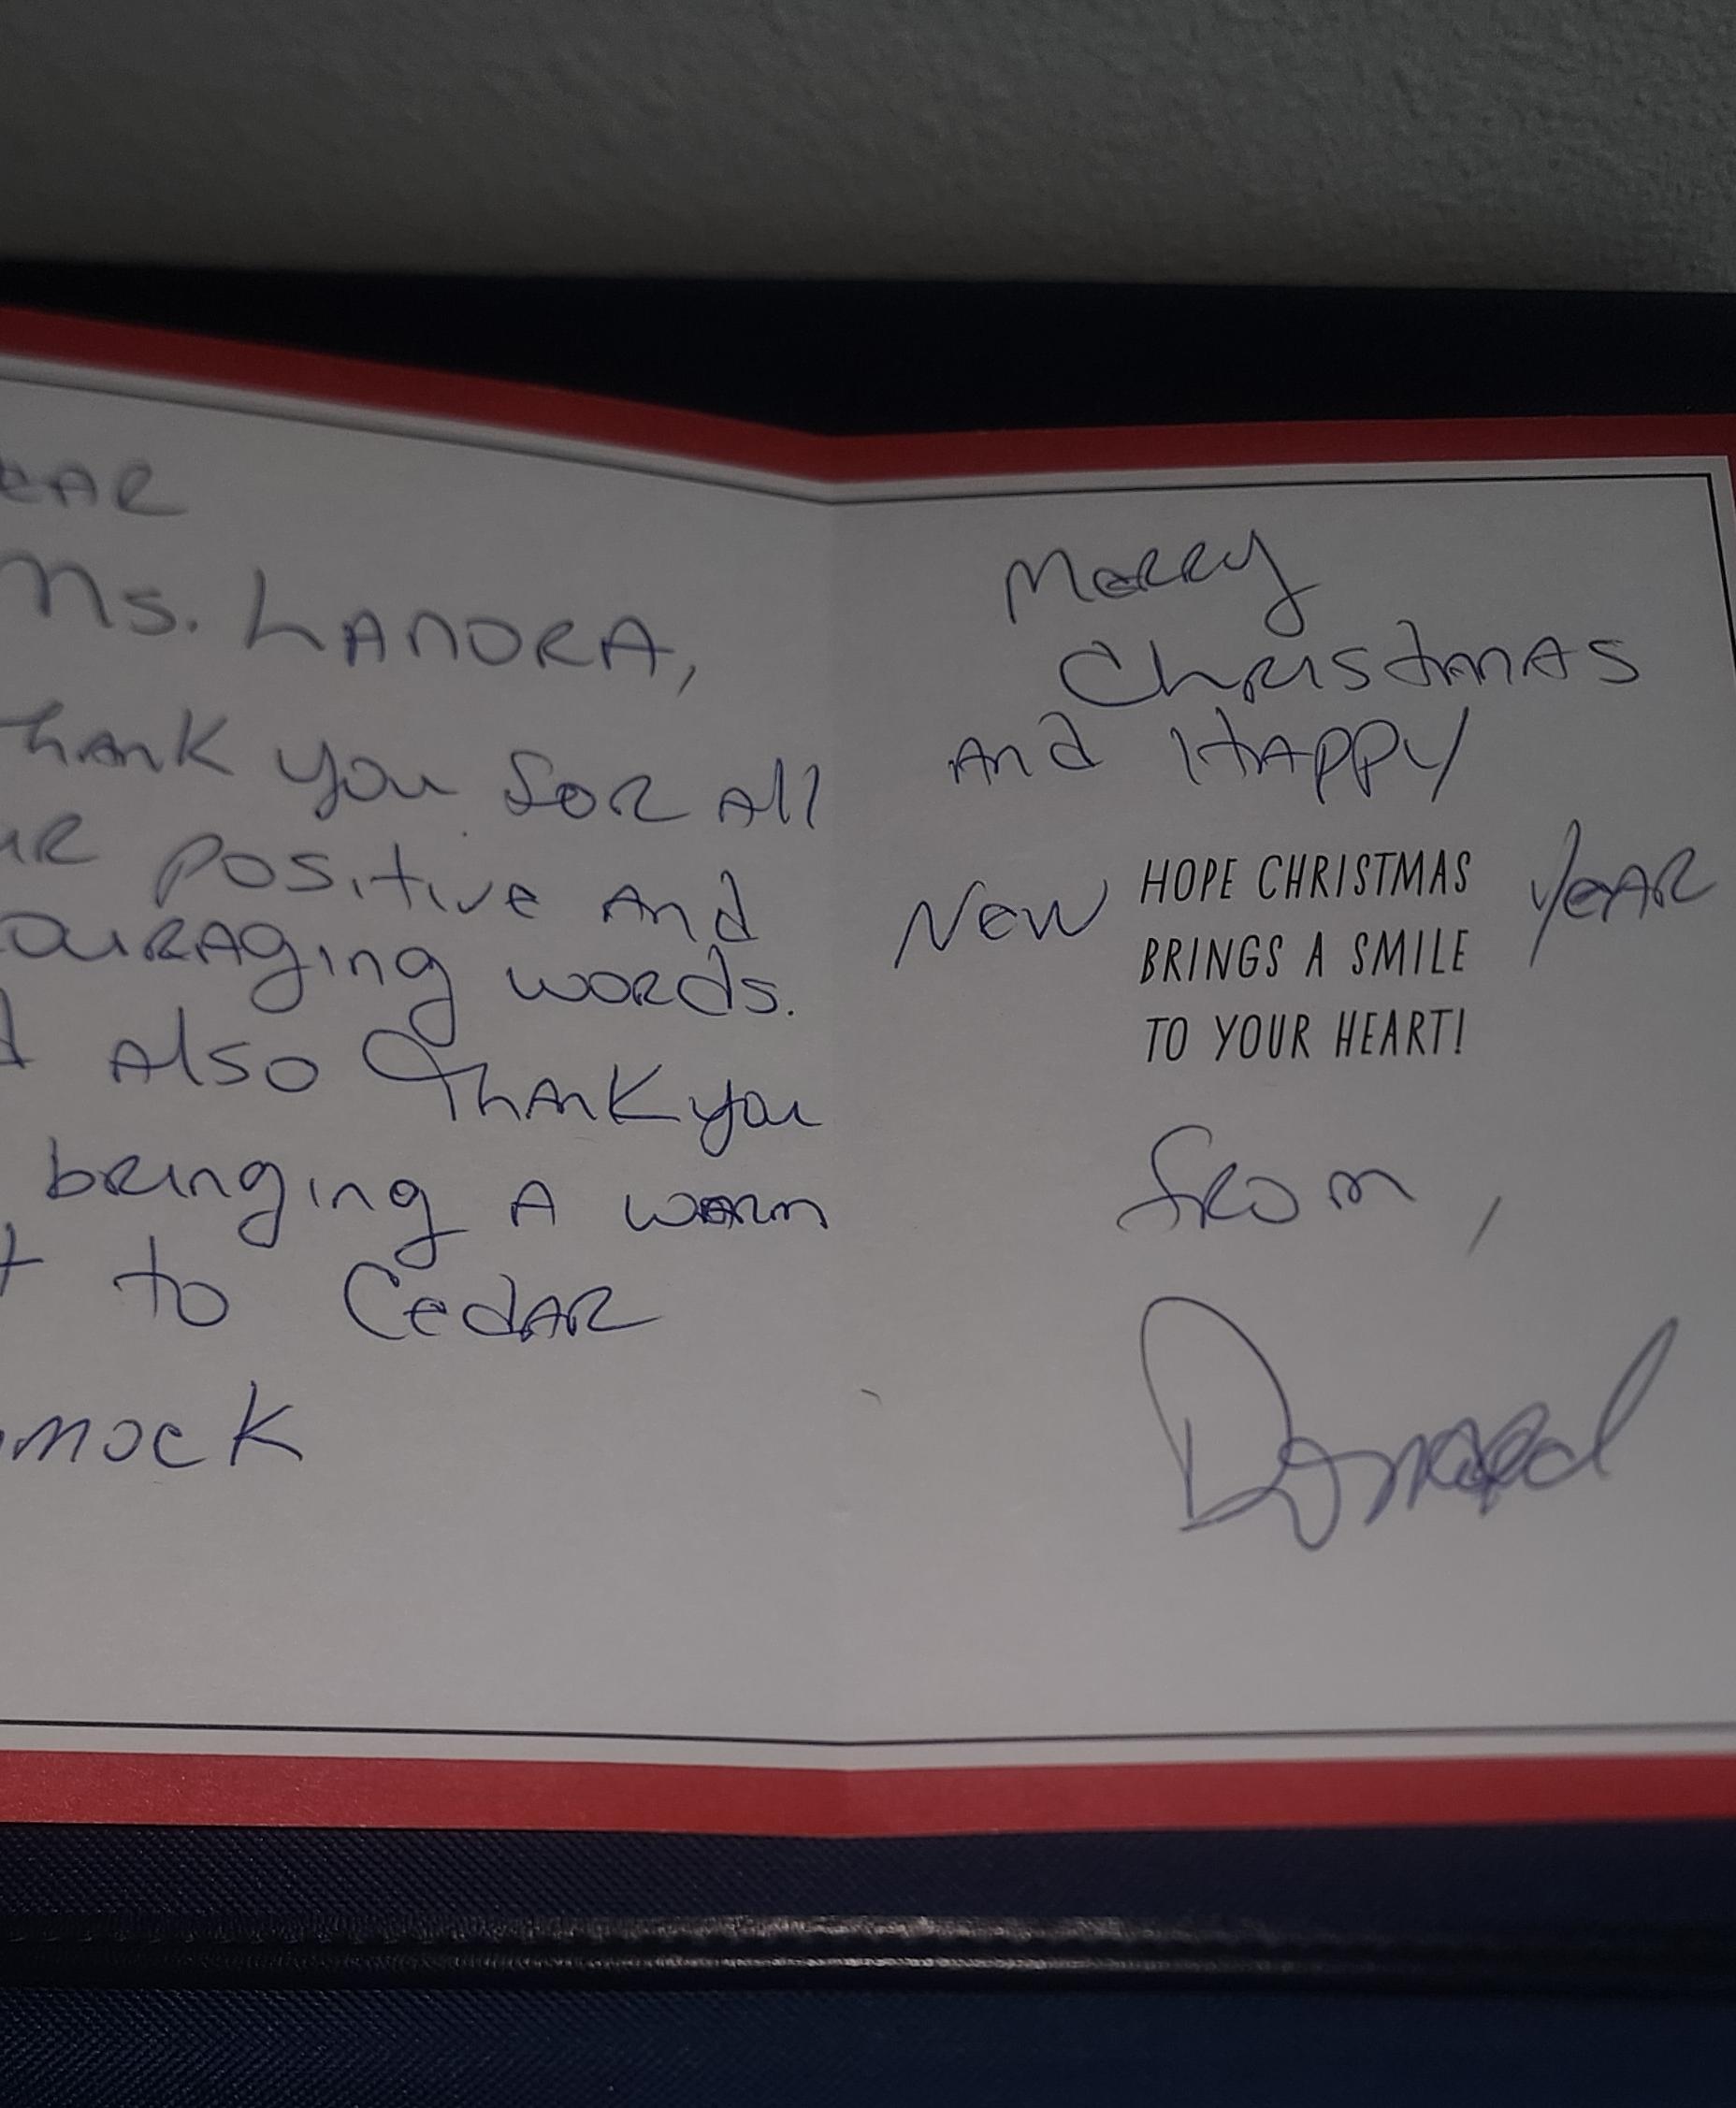 eAR
Ms. LANORA,
Thank you for All
uR positive And
ouRAging words.
d Also Thank you
bringing A warm
t to CedAR
mmock
Merry
Christmas
And HAppy
New YeAR
HOPE CHRISTMAS
BRINGS A SMILE
TO YOUR HEART!
from,
Donald